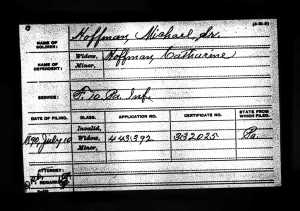 NAME OF SOLDIER: Hoffman, Michael, Sr.
NAME OF DEPENDENT: Widow, Hoffman, Catharine
Minor,
SERVICE: F. 10 Pa. Inf.
DATE OF FILING. CLASS. APPLICATION NO. CERTIFICATE NO. STATE FROM WHICH FILED.
Invalid,
1890 July 10 Widow, 443,392 332025 Pa.
Minor,
ATTORNEY:
REMARKS: